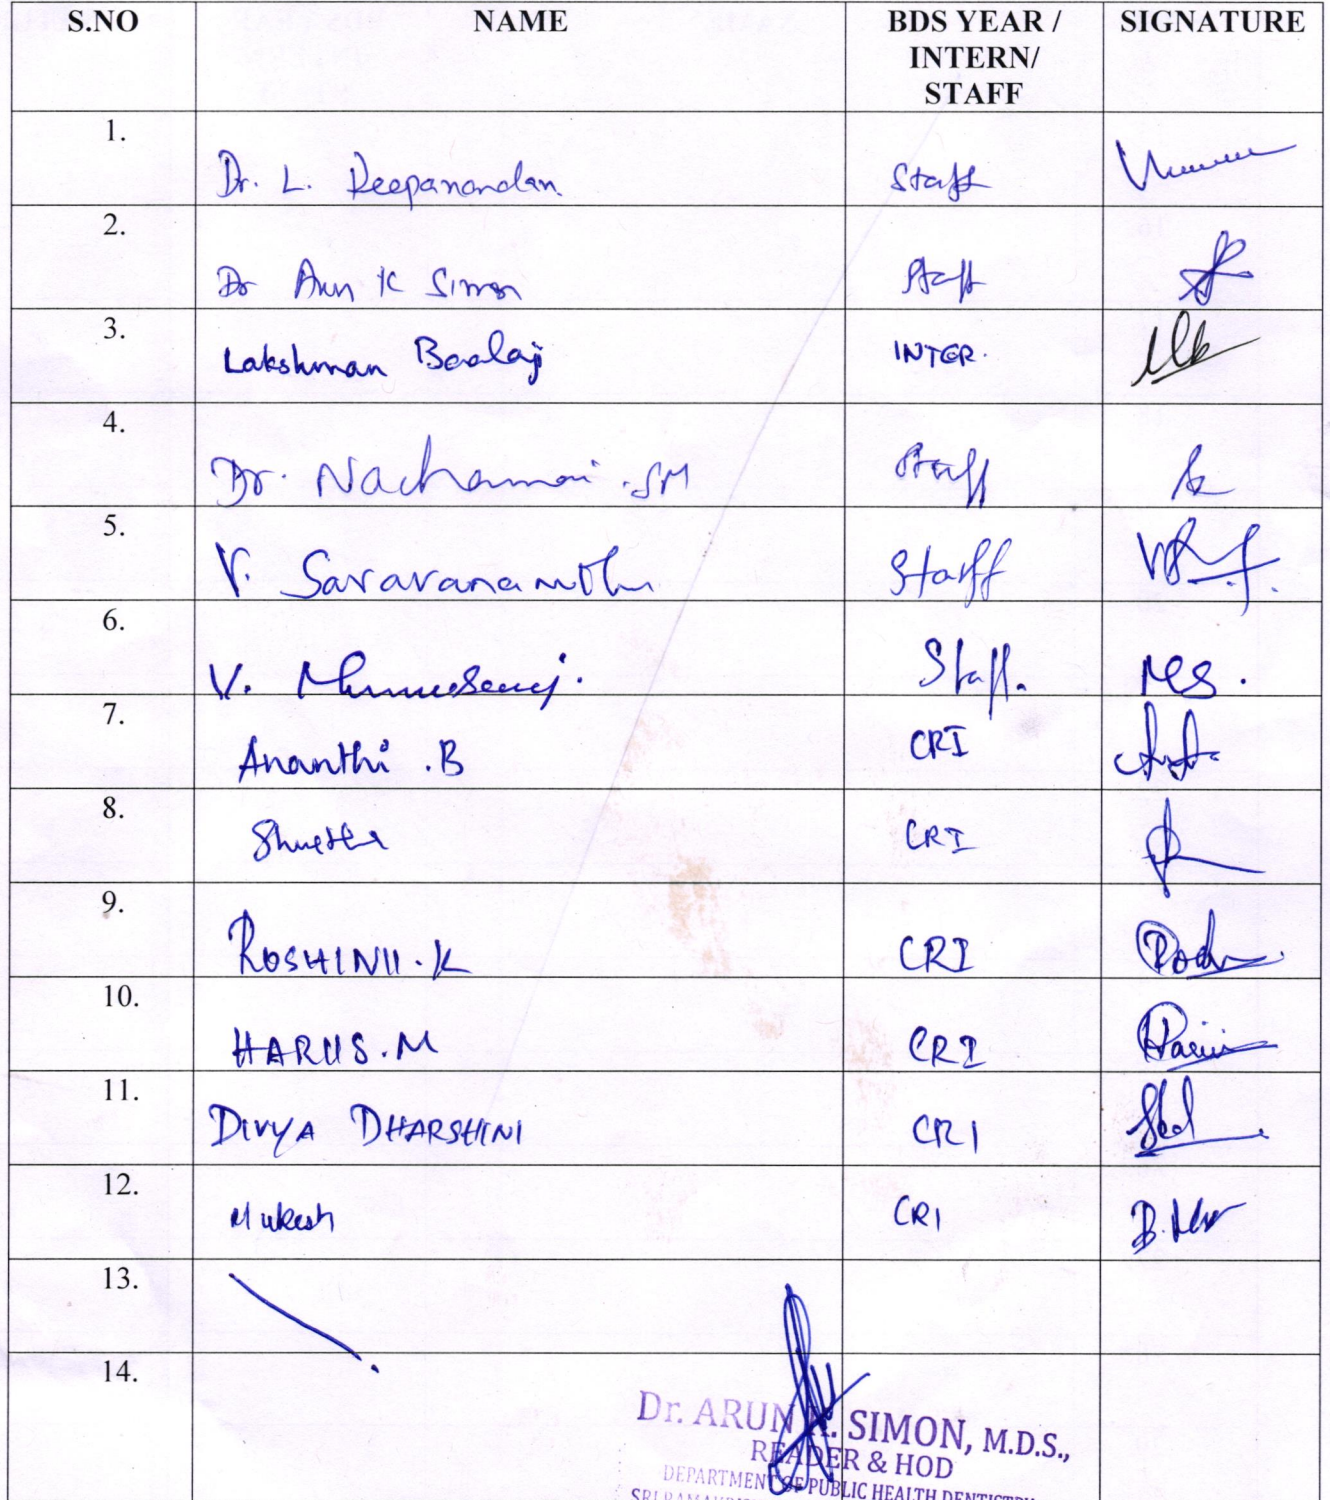 S.NO NAME BDS YEAR / INTERN/ STAFF SIGNATURE
1. Dr. L. Deepanandan Staff
2. Dr Arun K Simon Staff
3. Lakshman Baalaji INTER.
4. Dr. Nachammai .SM Staff
5. V. Saravanamuthu Staff
6. V. Staff. MS.
7. Ananthi .B CRI
8. Shwetha CRI
9. ROSHINII.K CRI
10. HARIIS.M CRI
11. DIVYA DHARSHINI CRI
12. Mukesh CRI
13.
14.
Dr. ARUN K. SIMON, M.D.S.,
READER & HOD
DEPARTMENT OF PUBLIC HEALTH DENTISTRY